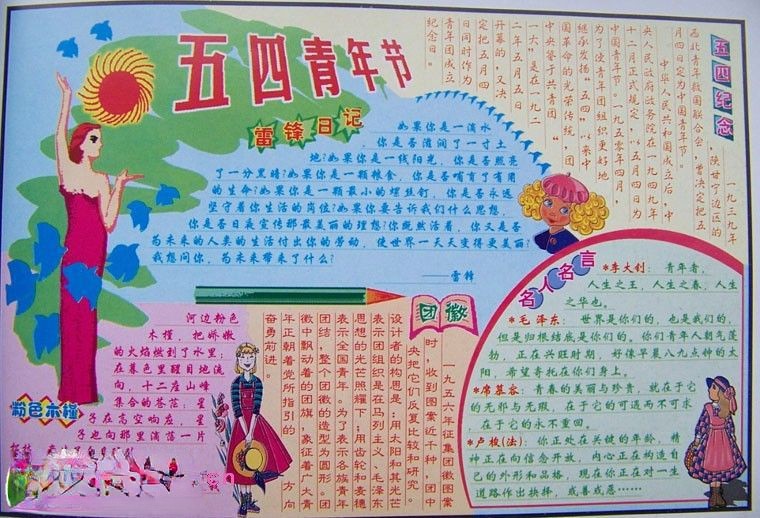 五四青年节
五四纪念
一九三九年
,陕甘宁边区的
西北青年救国联合会,曾决定把五
月四日定为中国青年节。
中华人民共和国成立后,中
央人民政府政务院在一九四九年
十二月正式规定,以五月四日为
中国青年节。一九五零年四月,
为了使青年团组织更好地
继承发扬“五四”以来中
国革命的光荣传统,团
中央鉴于共青团“
一大”是在一九二
二年五月五日
开幕的,又决
定把五月四
日同时作为
青年团成立
纪念日。
雷锋日记
如果你是一滴水
你是否滋润了一寸土
地?如果你是一线阳光,你是否照亮
了一分黑暗?如果你是一颗粮食,你是否哺育了有用
的生命?如果你是一颗最小的螺丝钉,你是否永远
坚守着你生活的岗位?如果你要告诉我们什么思想,
你是否日夜宣传那最美丽的理想?你既然活着,你又是否
为未来的人类的生活付出你的劳动,使世界一天天变得更美丽?
我想问你,为未来带来了什么?
——雷锋
粉色木槿
河边粉色
木槿,把娇嫩
的火焰燃到了水里;
在暮色里醒目地流
向,十二座山峰
集合的苍茫;星
子在高空响应,星
子也向那里滴落一片
团徽
一九五六年征集团徽图案
时,收到图案近千种,团中
央把它们反复比较和研究。
设计者的构思是:用太阳和其光芒
表示团组织是在马列主义、毛泽东
思想的光芒照耀下;用齿轮和麦穗
表示全国青年。为了表示各族青年
团结,整个团徽的造型为圆形。团
徽中飘动着的团旗,象征着广大青
年正朝着党所指引的 方向
奋勇前进。
名人名言
*李大钊:青年者,
人生之王,人生之春,人生
之华也。
*毛泽东:世界是你们的,也是我们的,
但是归根结底是你们的。你们青年人朝气蓬
勃,正在兴旺时期,好像早晨八九点钟的太
阳,希望寄托在你们身上。
*席慕容:青春的美丽与珍贵,就在于它
的无邪与无瑕,在于它的可遇而不可求
在于它的永不重回。
*卢梭(法):你正处在关键的年龄,精
神正在向信念开放,内心正在构造自
己的外形和品格,现在你正在对一生
道路作出抉择,或善或恶……